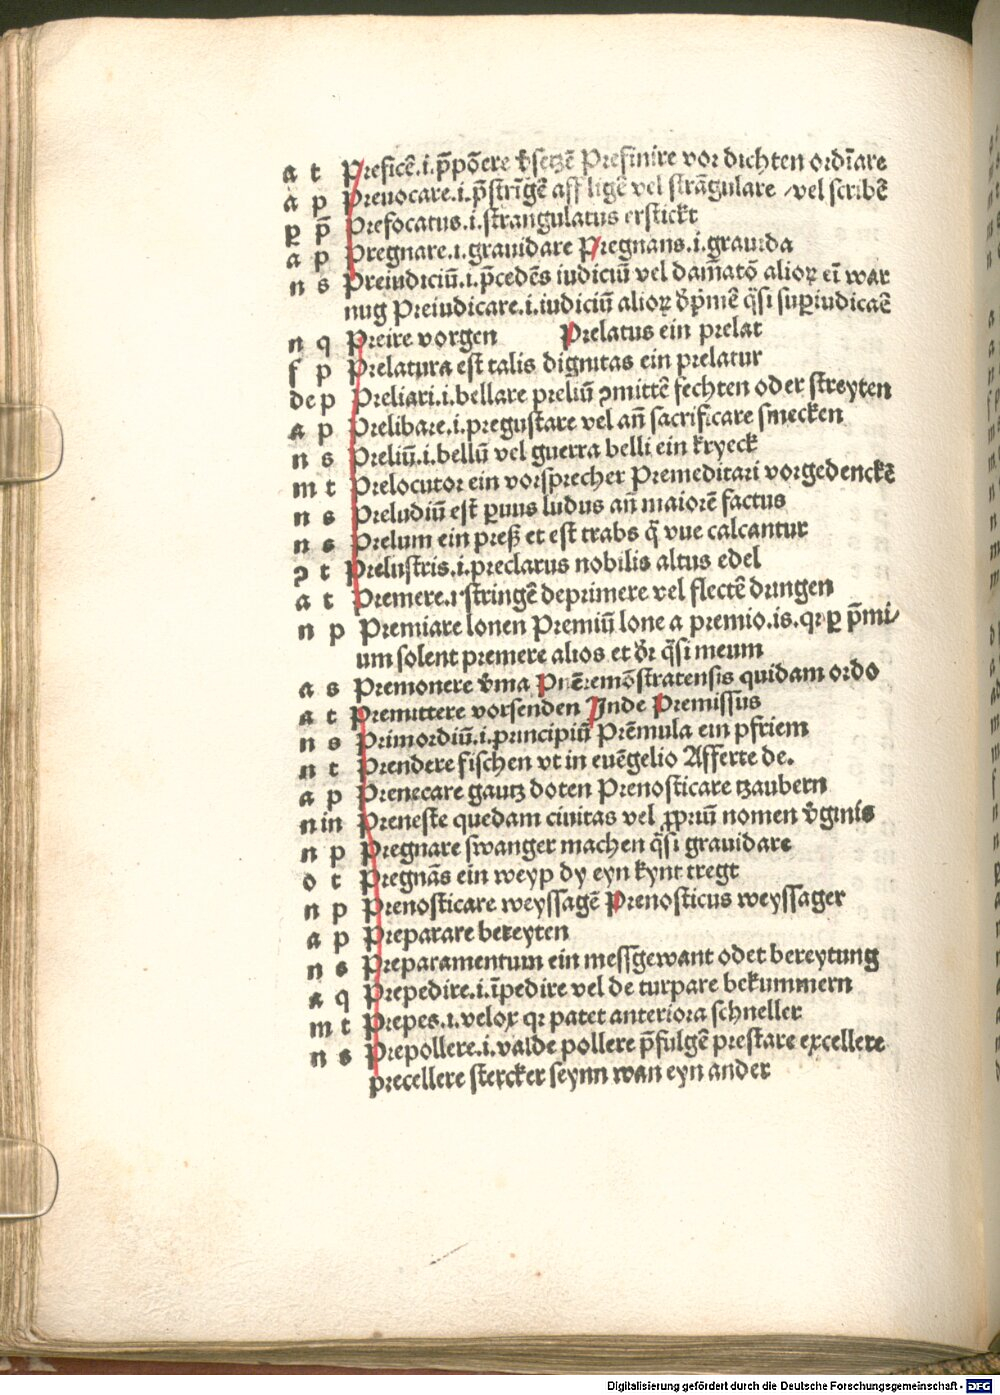 a t Preficē.i.p̄põere v̄setzē Prefinire vor dichten ordīare
a p Prenocare.i.p̄strīgē affligē vel strāgulare vel scribē
ꝑ p̄ Prefocatus.i.strangulatus erstickt
a p Pregnare.i.grauidare Pregnans.i.grauida
n s Preiudiciū.i.p̄cedēs iudiciū vel dam̄atō alioꝝ eī war
nug Preiudicare.i.iudiciū alioꝝ q̄si suꝑiudicaē
n q Preire vorgen Prelatus ein prelat
f p Prelatura est talis dignitas ein prelatur
de p Preliari.i.bellare preliū ꝯmittē fechten oder streyten
a p Prelibare.i.pregustare vel an̄ sacrificare smecken
n s Preliū.i.bellū vel guerra belli ein kryeck
m t Prelocutor ein vorsprecher Premeditari vorgedenckē
n s Preludiū est ꝑuus ludus an̄ maiorē factus
n s Prelum ein preß et est trabs q̄ vue calcantur
ꝯ t Prelustris.i.preclarus nobilis altus edel
a t Premere.i stringē deprimere vel flectē drungen
n p Premiare lonen Premiū lone a premio.is.qꝛ ꝑ p̄mi⸗
um solent premere alios et q̄si meum
a s Premonere v̄ma Premōstratensis quidam ordo
a t Premittere vorsenden Inde Premissus
n s Primordiū.i.principiū Prēmula ein pfriem
n t Prendere fischen vt in euēgelio Afferte de.
a p Prenecare gautz doten Prenosticare tzaubern
n in Preneste quedam ciuitas vel ꝓpriū nomen v̄ginis
n p Pregnare swanger machen q̄si grauidare
d t Pregnās ein weyp dy eyn kynt tregt
n p Prenosticare weyssagē Prenosticus weyssager
a p Preparare bereyten
n s Preparamentum ein messgewant odet bereytung
a q Prepedire.i.īpedire vel de turpare bekummern
m t Prepes.i.velox qꝛ patet anteriora schneller
n s Prepollere.i.valde pollere p̄fulgē prestare excellere
precellere stercker seynn wan eyn ander
Digitalisierung gefördert durch die Deutsche Forschungsgemeinschaft - DFG